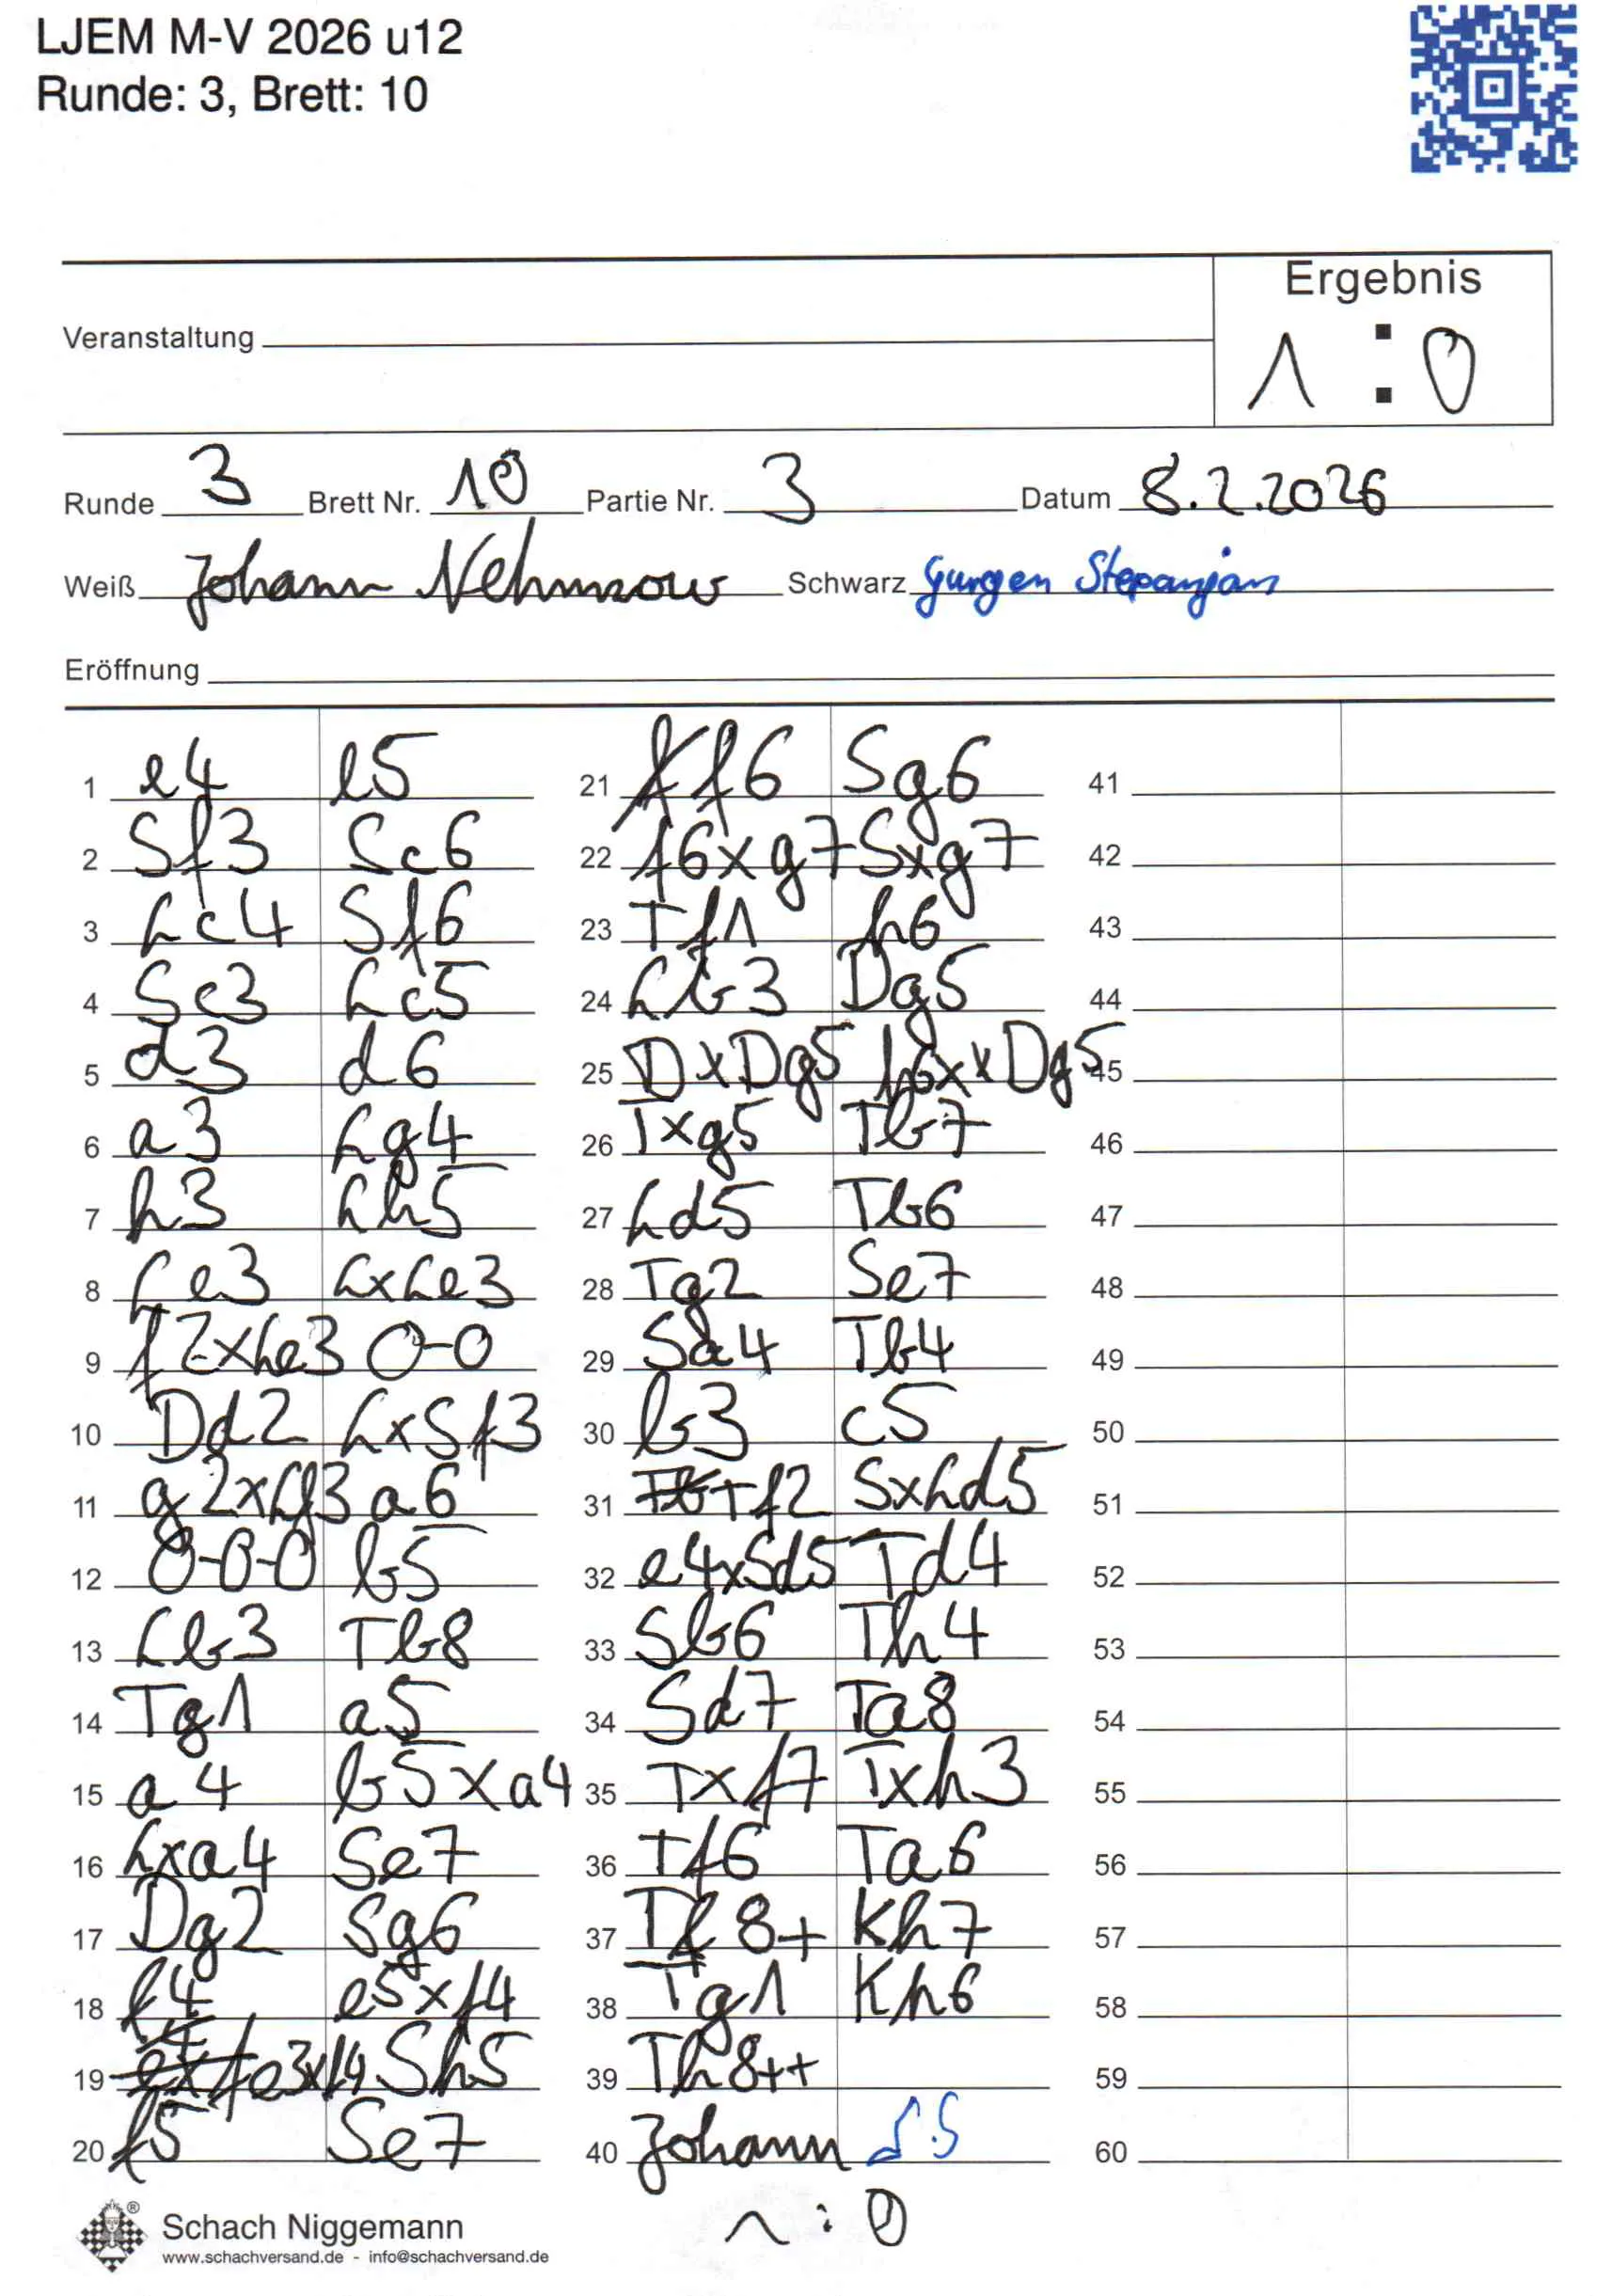 LJEM M-V 2026 u12
Runde: 3, Brett: 10
Ergebnis
Veranstaltung
1 : 0
Runde 3 Brett Nr. 10 Partie Nr. 3 Datum 8.2.2026
Weiß Johann Nehmzow Schwarz Gurgen Stepanjan
Eröffnung
1 e4 e5
2 Sf3 Sc6
3 Lc4 Sf6
4 Sc3 Lc5
5 d3 d6
6 a3 Lg4
7 h3 Lh5
8 Le3 LxLe3
9 f2xLe3 0-0
10 Dd2 LxSf3
11 g2xLf3 a6
12 0-0-0 b5
13 Lb3 Tb8
14 Tg1 a5
15 a4 b5xa4
16 Lxa4 Se7
17 Dg2 Sg6
18 f4 e5xf4
19 e3xf4 Sh5
20 f5 Se7
21 f6 Sg6
22 f6xg7 Sxg7
23 Tf1 h6
24 Lb3 Dg5
25 DxDg5 h6xDg5
26 Txg5 Tb7
27 Ld5 Tb6
28 Tg2 Se7
29 Sa4 Tb4
30 b3 c5
31 Tf2 SxLd5
32 e4xSd5 Td4
33 Sb6 Th4
34 Sd7 Ta8
35 Txf7 Txh3
36 Tf6 Ta6
37 Tf8+ Kh7
38 Tg1 Kh6
39 Th8++
40 Johann
41
42
43
44
45
46
47
48
49
50
51
52
53
54
55
56
57
58
59
60
1 : 0
Schach Niggemann
www.schachversand.de - info@schachversand.de